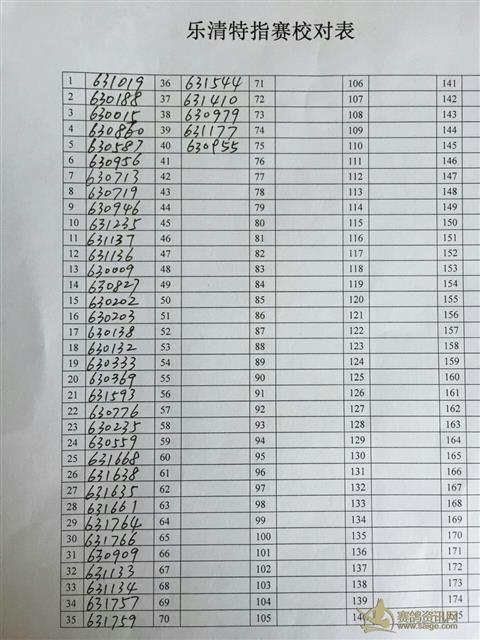 乐清特指赛校对表
1 631019 36 631544 71 106 141
2 630188 37 631410 72 107 142
3 630015 38 630979 73 108 143
4 630860 39 631177 74 109 144
5 630587 40 630955 75 110 145
6 630956 41 76 111 146
7 630713 42 77 112 147
8 630719 43 78 113 148
9 630946 44 79 114 149
10 631235 45 80 115 150
11 631137 46 81 116 151
12 631136 47 82 117 152
13 630009 48 83 118 153
14 630827 49 84 119 154
15 630202 50 85 120 155
16 630203 51 86 121 156
17 630138 52 87 122 157
18 630132 53 88 123 158
19 630333 54 89 124 159
20 630369 55 90 125 160
21 631593 56 91 126 161
22 630776 57 92 127 162
23 630235 58 93 128 163
24 630559 59 94 129 164
25 631668 60 95 130 165
26 631638 61 96 131 166
27 631635 62 97 132 167
28 631661 63 98 133 168
29 631764 64 99 134 169
30 631766 65 100 135 170
31 630909 66 101 136 171
32 631133 67 102 137 172
33 631134 68 103 138 173
34 631757 69 104 139 174
35 631759 70 105
赛鸽资讯网
www.saige.com